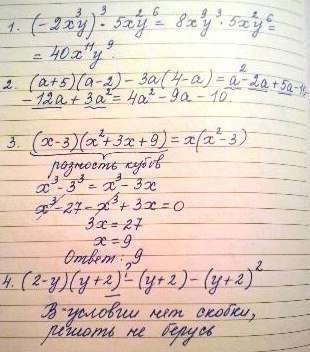 1. (-2x³y)³ · 5x²y⁶ = 8x⁹y³ · 5x²y⁶ =
= 40x¹¹y⁹.
2. (a+5)(a-2) - 3a(4-a) = a² - 2a + 5a - 10
- 12a + 3a² = 4a² - 9a - 10.
3. (x-3)(x²+3x+9) = x(x²-3)
разность кубов
x³ - 3³ = x³ - 3x
x³ - 27 - x³ + 3x = 0
3x = 27
x = 9
Ответ: 9
4. (2-y)(y+2)² - (y+2) - (y+2)²
?
В условии нет скобки,
решать не берусь